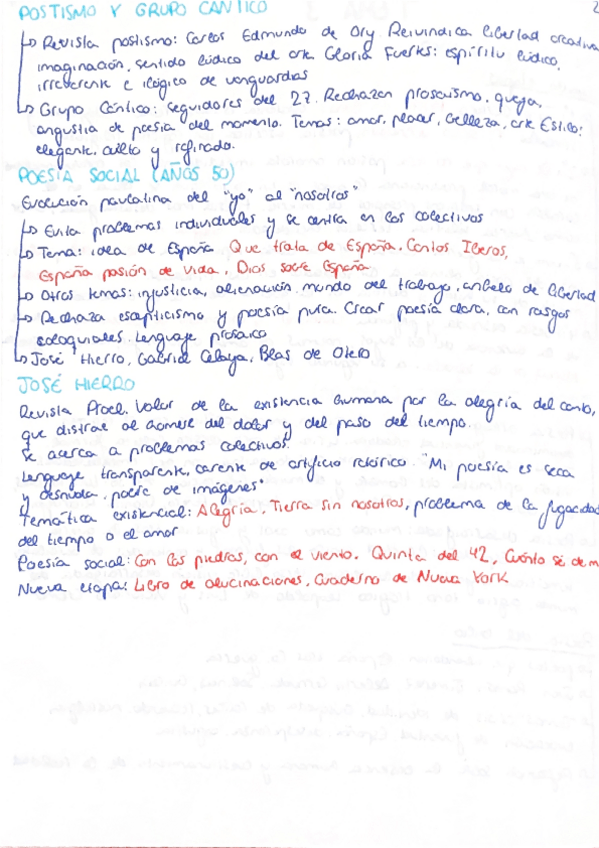 POSTISMO Y GRUPO CÁNTICO 2
Revista postismo: Carlos Edmundo de Ory. Reivindica libertad creativa
imaginación, sentido lúdico del arte. Gloria Fuertes: espíritu lúdico,
irreverente e ilógico de vanguardias
Grupo Cántico: seguidores del 27. Rechazan prosaísmo, queja,
angustia de poesía del momento. Temas: amor, placer, belleza, arte. Estilo:
elegante, culto y refinado.
POESÍA SOCIAL (AÑOS 50)
Evolución paulatina del "yo" al "nosotros"
Evita problemas individuales y se centra en los colectivos
Tema: idea de España. Que trata de España. Cantos Iberos,
España pasión de vida, Dios sobre España
Otros temas: injusticia, alienación, mundo del trabajo, anhelo de libertad
Rechaza escapiticismo y poesía pura. Crear poesía clara, con rasgos
coloquiales. Lenguaje prosaico
José Hierro, Gabriel Celaya, Blas de Otero
JOSÉ HIERRO
Revista Proel. Valor de la existencia humana por la alegría del canto,
que distrae al hombre del dolor y del paso del tiempo.
Se acerca a problemas colectivos.
Lenguaje transparente, carente de artificio retórico. "Mi poesía es seca
y desnuda, pobre de imágenes"
Temática existencial: Alegría, Tierra sin nosotros, problema de la fugacidad
del tiempo o el amor
Poesía social: Con las piedras, con el viento. Quinta del 42, Cuánto sé de m
Nueva etapa: Libro de alucinaciones, Cuaderno de Nueva York